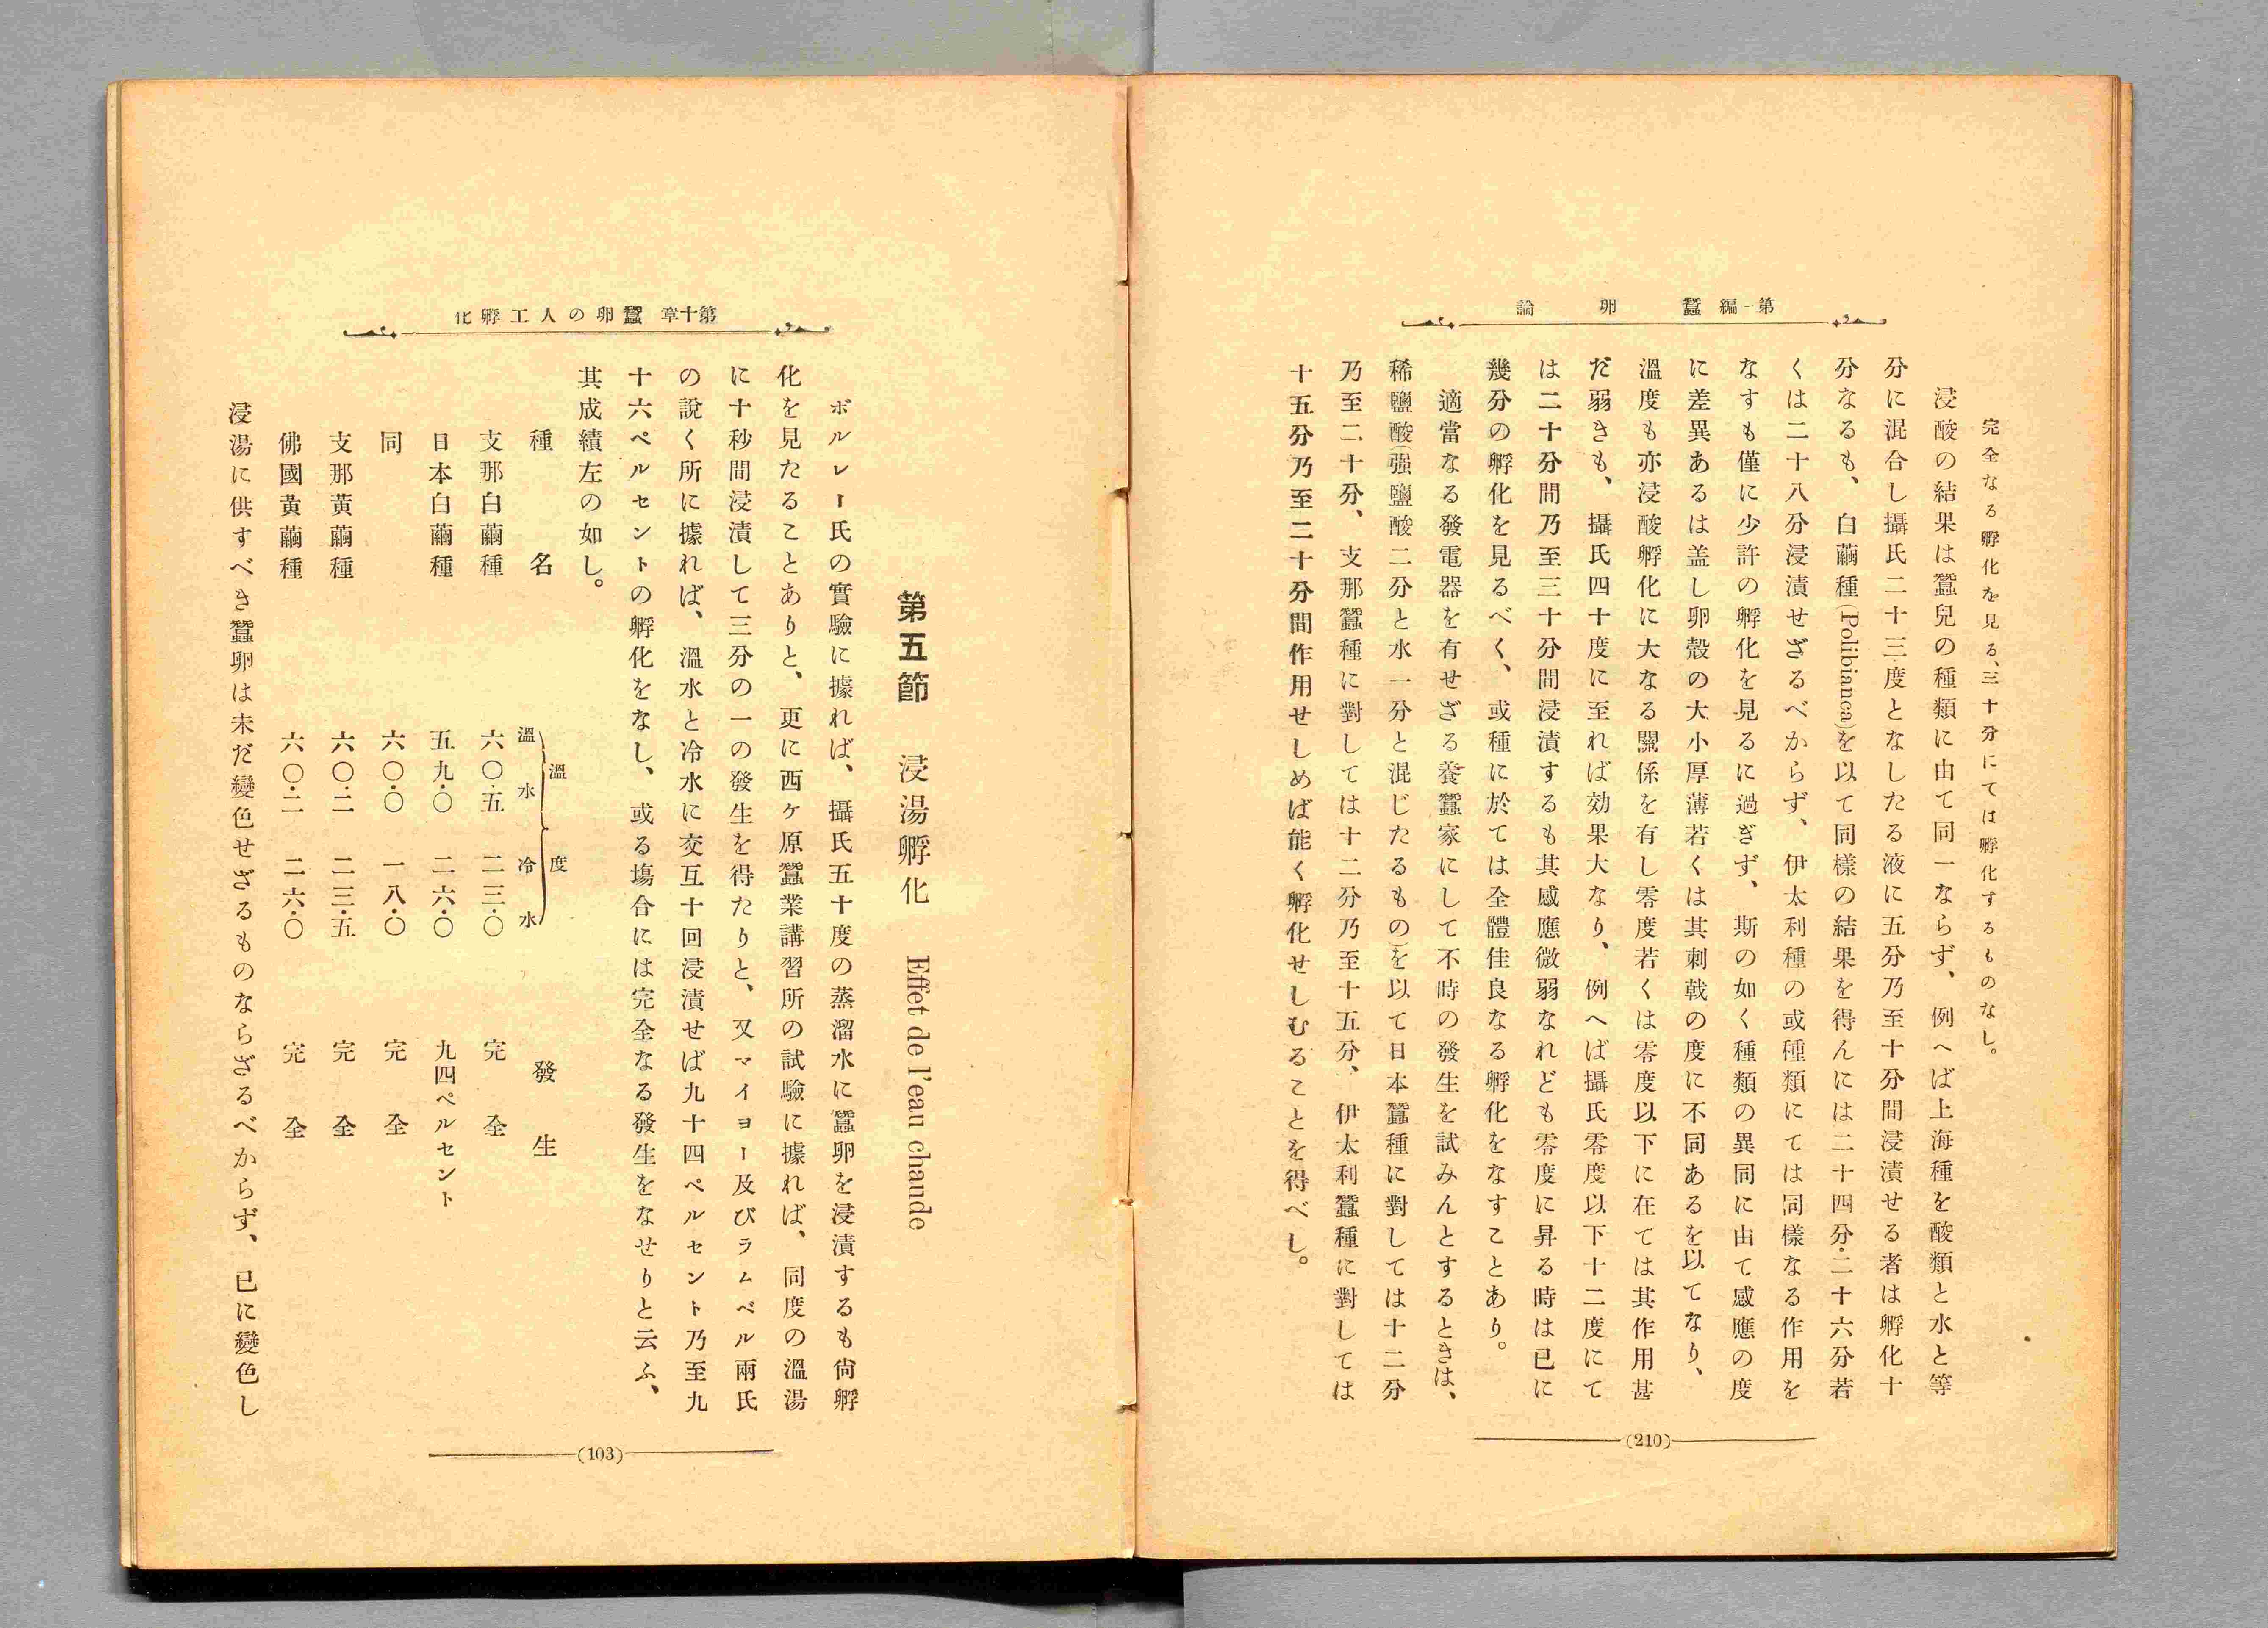 第一編　蠶卵論
完全なる孵化を見る、三十分にては孵化するものなし。
浸酸の結果は蠶兒の種類に由て同一ならず、例へば上海種を酸類と水と等
分に混合し攝氏二十三度となしたる液に五分乃至十分間浸漬せる者は孵化十
分なるも、白繭種(Polibianca)を以て同樣の結果を得んには二十四分・二十六分若
くは二十八分浸漬せざるべからず、伊太利種の或種類にては同樣なる作用を
なすも僅に少許の孵化を見るに過ぎず、斯の如く種類の異同に由て感應の度
に差異あるは盖し卵殼の大小厚薄若くは其刺戟の度に不同あるを以てなり、
溫度も亦浸酸孵化に大なる關係を有し零度若くは零度以下に在ては其作用甚
だ弱きも、攝氏四十度に至れば効果大なり、例へば攝氏零度以下十二度にて
は二十分間乃至三十分間浸漬するも其感應微弱なれども零度に昇る時は已に
幾分の孵化を見るべく、或種に於ては全體佳良なる孵化をなすことあり。
適當なる發電器を有せざる養蠶家にして不時の發生を試みんとするときは、
稀鹽酸(强鹽酸二分と水一分と混じたるもの)を以て日本蠶種に對しては十二分
乃至二十分、支那蠶種に對しては十二分乃至十五分、伊太利蠶種に對しては
十五分乃至二十分間作用せしめば能く孵化せしむることを得べし。
(210)
第十章　蠶卵の人工孵化
第五節　浸湯孵化　Effet de l'eau chaude
ボルレー氏の實驗に據れば、攝氏五十度の蒸溜水に蠶卵を浸漬するも尙孵
化を見たることありと、更に西ケ原蠶業講習所の試驗に據れば、同度の溫湯
に十秒間浸漬して三分の一の發生を得たりと、又マイヨー及びラムベル兩氏
の說く所に據れば、溫水と冷水に交互十回浸漬せば九十四ペルセント乃至九
十六ペルセントの孵化をなし、或る塲合には完全なる發生をなせりと云ふ、
其成績左の如し。
種名　溫度　溫水　冷水　發生
支那白繭種　六〇・五　二三・〇　完全
日本白繭種　五九・〇　二六・〇　九四ペルセント
同　六〇・〇　一八・〇　完全
支那黃繭種　六〇・二　二三・五　完全
佛國黃繭種　六〇・二　二六・〇　完全
浸湯に供すべき蠶卵は未だ變色せざるものならざるべからず、已に變色し
(103)